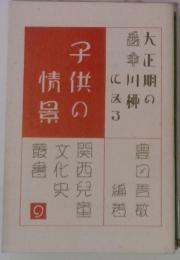 大正期の
番傘川柳
にみる
子供の
情景
豊田善敬
編著
関西兒童
文化史
叢書
9